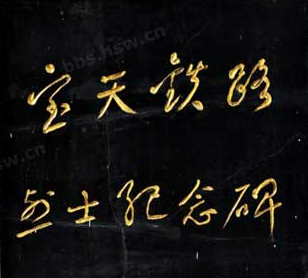 宝天鉄路
烈士纪念碑
bbs.hsw.cn